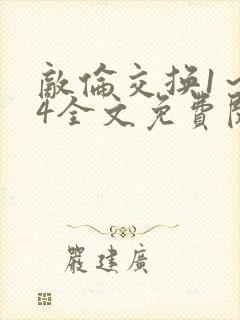 敵倫交换1～
4全文免費閱
嚴建廣